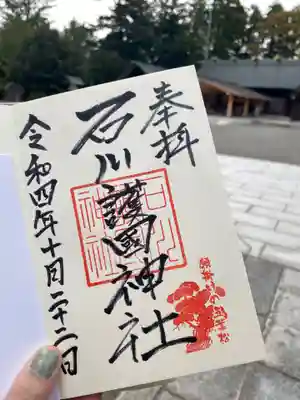 奉拝
石川護國神社
令和四年十月二十二日